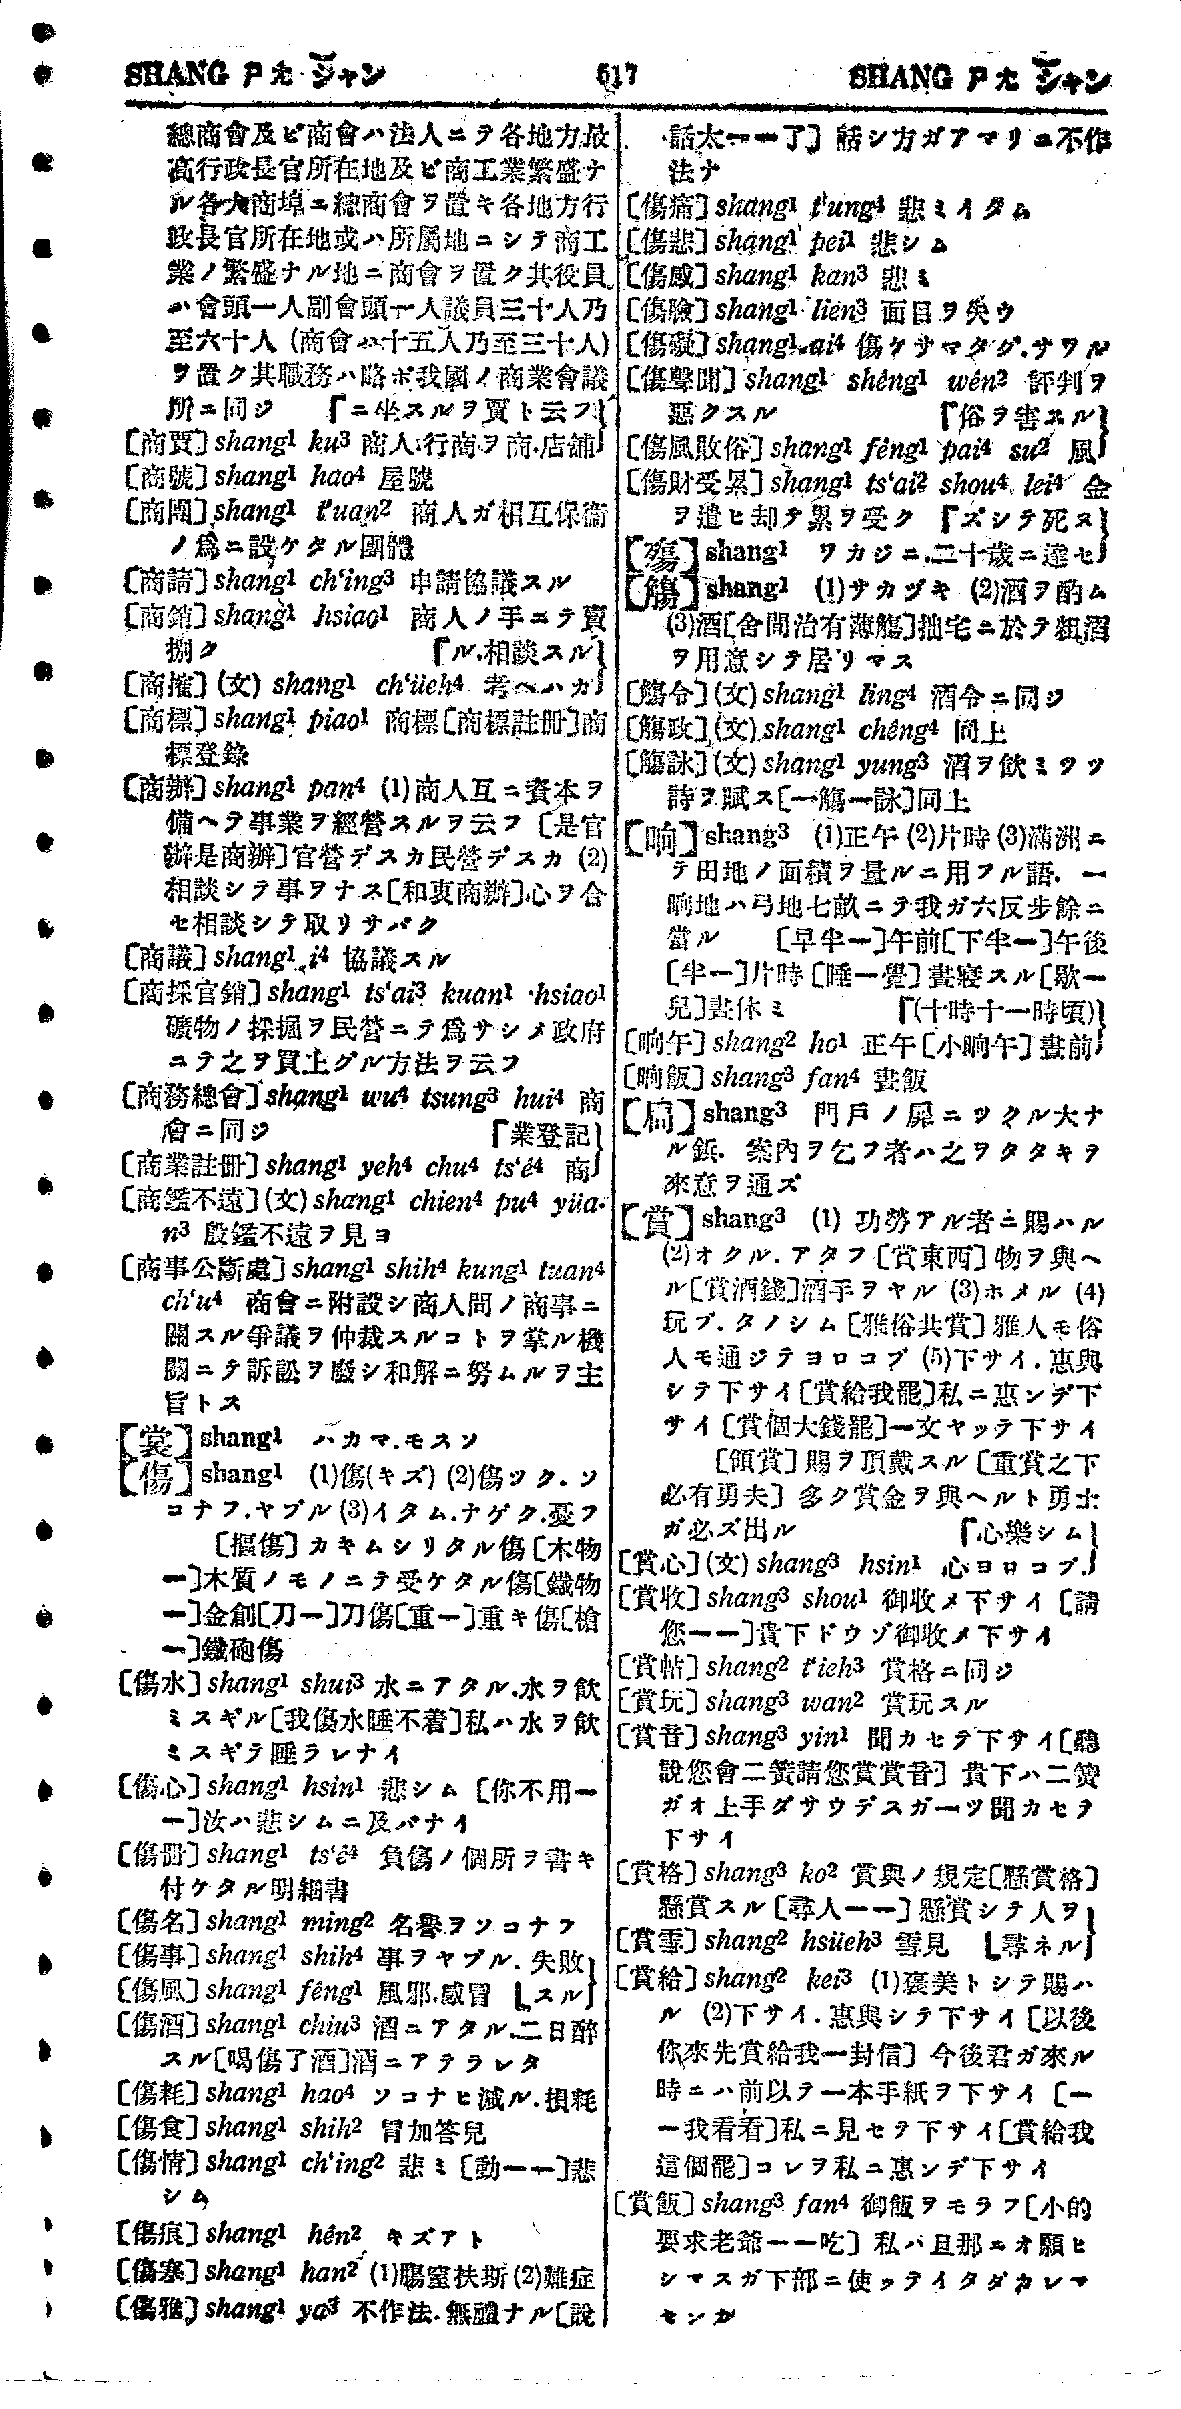 SHANG ㄕㄤ シャン 617 SHANG ㄕㄤ シャン
總商會及ビ商會ハ法人ニテ各地方最
高行政長官所在地及ビ商工業繁盛ナ
ル各大商埠ニ總商會ヲ置キ各地方行
政長官所在地或ハ所屬地ニシテ商工
業ノ繁盛ナル地ニ商會ヲ置ク其役員
ハ會頭一人副會頭一人議員三十人乃
至六十人 (商會ハ十五人乃至三十人)
ヲ置ク其職務ハ略ボ我國ノ商業會議
所ニ同ジ 「ニ坐スルヲ賈ト云フ
[商賈] shang¹ ku³ 商人.行商ヲ商.店舖
[商號] shang¹ hao⁴ 屋號
[商團] shang¹ t‘uan² 商人ガ相互保衞
ノ爲ニ設ケタル團體
[商請] shang¹ ch‘ing³ 申請協議スル
[商銷] shang¹ hsiao¹ 商人ノ手ニテ賣
捌ク 「ル.相談スル
[商搉] (文) shang¹ ch‘üeh⁴ 考ヘハカ
[商標] shang¹ piao¹ 商標 [商標註册] 商
標登錄
[商辦] shang¹ pan⁴ (1)商人互ニ資本ヲ
備ヘテ事業ヲ經營スルヲ云フ [是官
辦是商辦] 官營デスカ民營デスカ (2)
相談シテ事ヲナス [和衷商辦] 心ヲ合
セ相談シテ取リサバク
[商議] shang¹ i⁴ 協議スル
[商採官銷] shang¹ ts‘ai³ kuan¹ hsiao¹
礦物ノ採掘ヲ民營ニテ爲サシメ政府
ニテ之ヲ買上グル方法ヲ云フ
[商務總會] shang¹ wu⁴ tsung³ hui⁴ 商
會ニ同ジ 「業登記
[商業註册] shang¹ yeh⁴ chu⁴ ts‘ê⁴ 商
[商鑑不遠] (文) shang¹ chien⁴ pu⁴ yüa-
n³ 殷鑑不遠ヲ見ヨ
[商事公斷處] shang¹ shih⁴ kung¹ tuan⁴
ch‘u⁴ 商會ニ附設シ商人間ノ商事ニ
關スル爭議ヲ仲裁スルコトヲ掌ル機
關ニテ訴訟ヲ廢シ和解ニ努ムルヲ主
旨トス
【裳】 shang¹ ハカマ.モスソ
【傷】 shang¹ (1)傷(キズ) (2)傷ツク.ソ
コナフ.ヤブル (3)イタム.ナゲク.憂フ
[摳傷] カキムシリタル傷 [木物
一] 木質ノモノニテ受ケタル傷 [鐵物
一] 金創 [刀一] 刀傷 [重一] 重キ傷 [槍
一] 鐵砲傷
[傷水] shang¹ shui³ 水ニアタル.水ヲ飮
ミスギル [我傷水睡不着] 私ハ水ヲ飮
ミスギテ睡ラレナイ
[傷心] shang¹ hsin¹ 悲シム [你不用一
一] 汝ハ悲シムニ及バナイ
[傷册] shang¹ ts‘ê⁴ 負傷ノ個所ヲ書キ
付ケタル明細書
[傷名] shang¹ ming² 名譽ヲソコナフ
[傷事] shang¹ shih⁴ 事ヲヤブル.失敗
[傷風] shang¹ fêng¹ 風邪.感冒 スル
[傷酒] shang¹ chiu³ 酒ニアタル.二日醉
スル [喝傷了酒] 酒ニアテラレタ
[傷耗] shang¹ hao⁴ ソコナヒ減ル.損耗
[傷食] shang¹ shih² 胃加答兒
[傷情] shang¹ ch‘ing² 悲ミ [動一一] 悲
シム
[傷痕] shang¹ hên² キズアト
[傷寒] shang¹ han² (1)膓窒扶斯 (2)難症
[傷雅] shang¹ ya³ 不作法.無禮ナル [說
話太一一了] 話シ方ガアマリニ不作
法ナ
[傷痛] shang¹ t‘ung⁴ 悲ミイタム
[傷悲] shang¹ pei¹ 悲シム
[傷感] shang¹ kan³ 悲ミ
[傷臉] shang¹ lien³ 面目ヲ失ウ
[傷礙] shang¹ ai⁴ 傷ケサマタグ.サワル
[傷聲聞] shang¹ shêng¹ wên² 評判ヲ
惡クスル 「俗ヲ害スル
[傷風敗俗] shang¹ fêng¹ pai⁴ su² 風
[傷財受累] shang¹ ts‘ai² shou⁴ lei⁴ 金
ヲ遣ヒ却テ累ヲ受ク 「ズシテ死ス
【殤】 shang¹ ワカジニ.二十歲ニ達セ
【觴】 shang¹ (1)サカヅキ (2)酒ヲ酌ム
(3)酒 [舍間治有薄觴] 拙宅ニ於テ粗酒
ヲ用意シテ居リマス
[觴令] (文) shang¹ ling⁴ 酒令ニ同ジ
[觴政] (文) shang¹ chêng⁴ 同上
[觴詠] (文) shang¹ yung³ 酒ヲ飮ミツツ
詩ヲ賦ス [一觴一詠] 同上
【晌】 shang³ (1)正午 (2)片時 (3)滿洲ニ
テ田地ノ面積ヲ量ルニ用フル語. 一
晌地ハ弓地七畝ニテ我ガ六反步餘ニ
當ル [早半一] 午前 [下半一] 午後
[半一] 片時 [睡一覺] 晝寢スル [歇一
兒] 晝休ミ 「(十時十一時頃)
[晌午] shang² ho¹ 正午 [小晌午] 晝前
[晌飯] shang³ fan⁴ 晝飯
shang³ 門戶ノ扉ニツクル大ナ
ル鋲. 案內ヲ乞フ者ハ之ヲタタキヲ
來意ヲ通ズ
【賞】 shang³ (1) 功勞アル者ニ賜ハル
(2)オクル.アタフ [賞東西] 物ヲ與ヘ
ル [賞酒錢] 酒手ヲヤル (3)ホメル (4)
玩ブ.タノシム [雅俗共賞] 雅人モ俗
人モ通ジテヨロコブ (5)下サイ.惠與
シテ下サイ [賞給我罷] 私ニ惠ンデ下
サイ [賞個大錢罷] 一文ヤッテ下サイ
[領賞] 賜ヲ頂戴スル [重賞之下
必有勇夫] 多ク賞金ヲ與ヘルト勇士
ガ必ズ出ル 「心樂シム
[賞心] (文) shang³ hsin¹ 心ヨロコブ.
[賞收] shang³ shou¹ 御收メ下サイ [請
您一一] 貴下ドウゾ御收メ下サイ
[賞帖] shang² t‘ieh³ 賞格ニ同ジ
[賞玩] shang³ wan² 賞玩スル
[賞音] shang³ yin¹ 聞カセテ下サイ [聽
說您會二簧請您賞賞音] 貴下ハ二簧
ガオ上手ダサウデスガ一ツ聞カセヲ
下サイ
[賞格] shang³ ko² 賞與ノ規定 [懸賞格]
懸賞スル [尋人一一] 懸賞シテ人ヲ
[賞雪] shang² hsüeh³ 雪見 尋ネル
[賞給] shang² kei³ (1)褒美トシテ賜ハ
ル (2)下サイ.惠與シテ下サイ [以後
你來先賞給我一封信] 今後君ガ來ル
時ニハ前以テ一本手紙ヲ下サイ [一
一我看看] 私ニ見セテ下サイ [賞給我
這個罷] コレヲ私ニ惠ンデ下サイ
[賞飯] shang³ fan⁴ 御飯ヲモラフ [小的
要求老爺一一吃] 私ハ旦那ニオ願ヒ
シマスガ下部ニ使ッテイタダカレマ
センカ